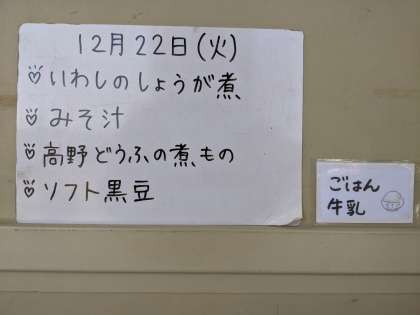 12月22日(火)
いわしのしょうが煮
みそ汁
高野どうふの煮もの
ソフト黒豆
ごはん
牛乳